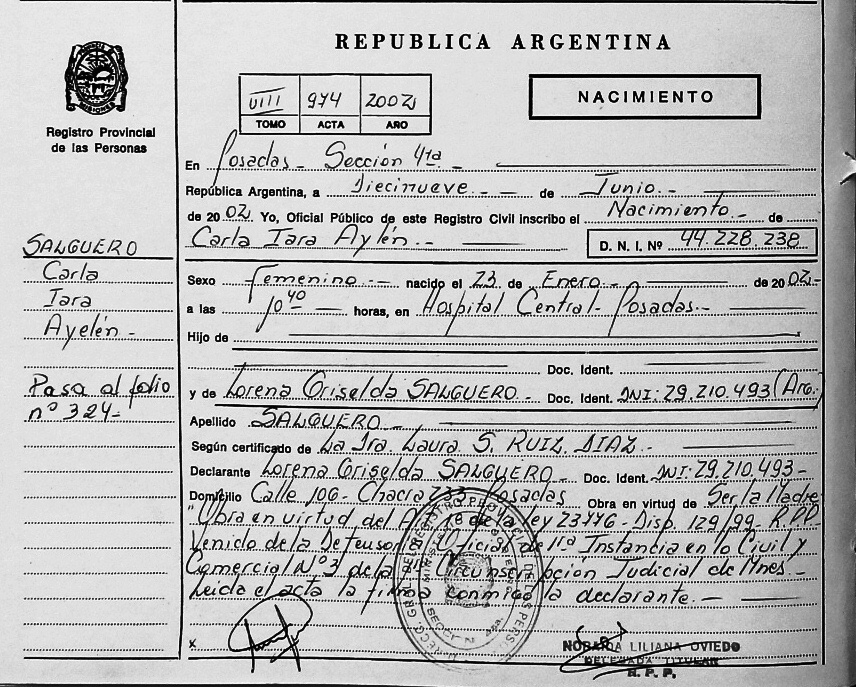 REPUBLICA ARGENTINA
MISIONES
Registro Provincial
de las Personas
VIII 974 2002
TOMO ACTA AÑO
NACIMIENTO
En Posadas - Sección 4ta -
República Argentina, a Diecinueve - de Junio -
de 2002 Yo, Oficial Público de este Registro Civil inscribo el Nacimiento - de
Carla Iara Aylén - D. N. I. Nº 44.228.238
SALGUERO
Carla
Iara
Ayelén -
Pasa al folio
nº 324-
Sexo Femenino - nacido el 23 de Enero de 2002-
a las 10 40 horas, en Hospital Central - Posadas -
Hijo de
Doc. Ident.
y de Lorena Griselda SALGUERO - Doc. Ident. DNI: 29.210.493 (Arg.)
Apellido SALGUERO
Según certificado de La Dra. Laura S. RUIZ DIAZ -
Declarante Lorena Griselda SALGUERO - Doc. Ident. DNI: 29.210.493-
Domicilio Calle 106 - Chacra 233 Posadas Obra en virtud de Ser la Madre
"Obra en virtud del 18 de la ley 23776 - Disp. 129/99 - R.P.P.
Venido de la Defensoría Oficial de 1ra Instancia en lo Civil y
Comercial Nº3 de la Circunscripción Judicial de Mnes -
Leída el acta la firma conmigo la declarante. -
x
NOBAIDA LILIANA OVIEDO
DELEGADA TITULAR
R. P. P.